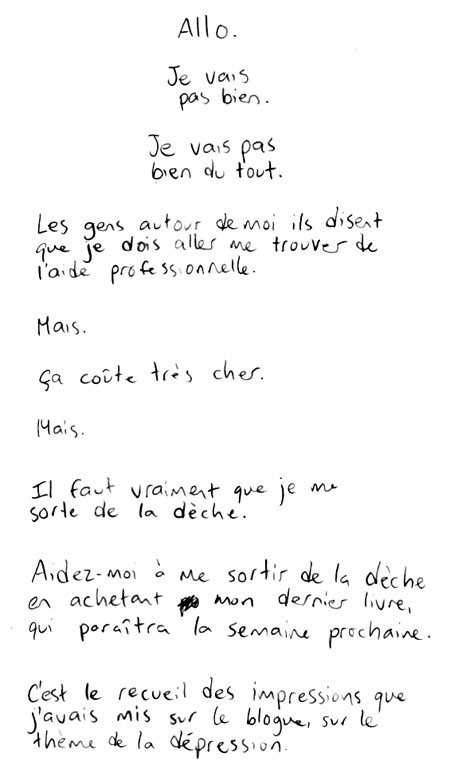 Allo.
Je vais
pas bien.
Je vais pas
bien du tout.
Les gens autour de moi ils disent
que je dois aller me trouver de
l'aide professionnelle.
Mais.
Ça coûte très cher.
Mais.
Il faut vraiment que je me
sorte de la dèche.
Aidez-moi à me sortir de la dèche
en achetant mon dernier livre,
qui paraîtra la semaine prochaine.
C'est le recueil des impressions que
j'avais mis sur le blogue, sur le
thème de la dépression.